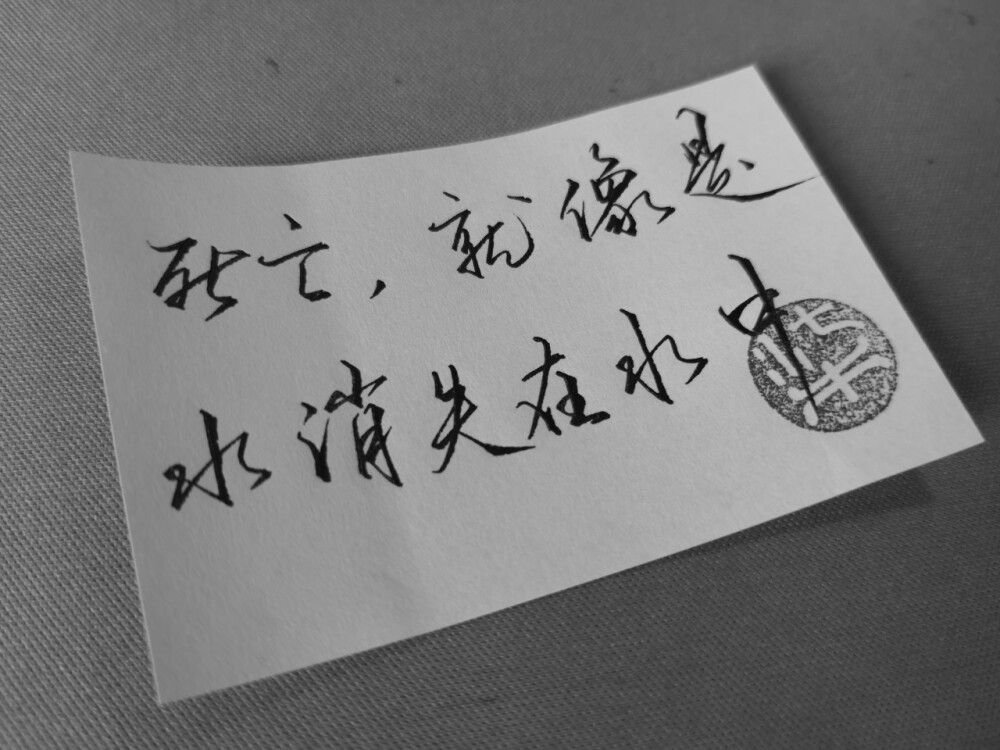 死亡，就像是
水消失在水中